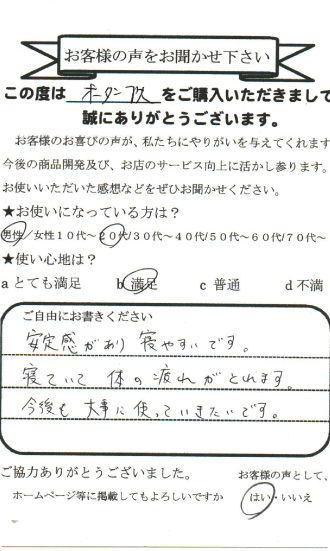 お客様の声をお聞かせ下さい
この度は オーダー枕 をご購入いただきまして
誠にありがとうございます。
お客様のお喜びの声が、私たちにやりがいを与えてくれます
今後の商品開発及び、お店のサービス向上に活かし参ります。
お使いいただいた感想などをぜひお聞かせください。
★お使いになっている方は？
男性/女性10代～20代/30代～40代/50代～60代/70代～
★使い心地は？
aとても満足 b満足 c普通 d不満
ご自由にお書きください
安定感があり 寝やすいです。
寝ていて 体の疲れがとれます。
今後も 大事に使っていきたいです。
ご協力ありがとうございました。 お客様の声として、
ホームページ等に掲載してもよろしいですか はい・いいえ